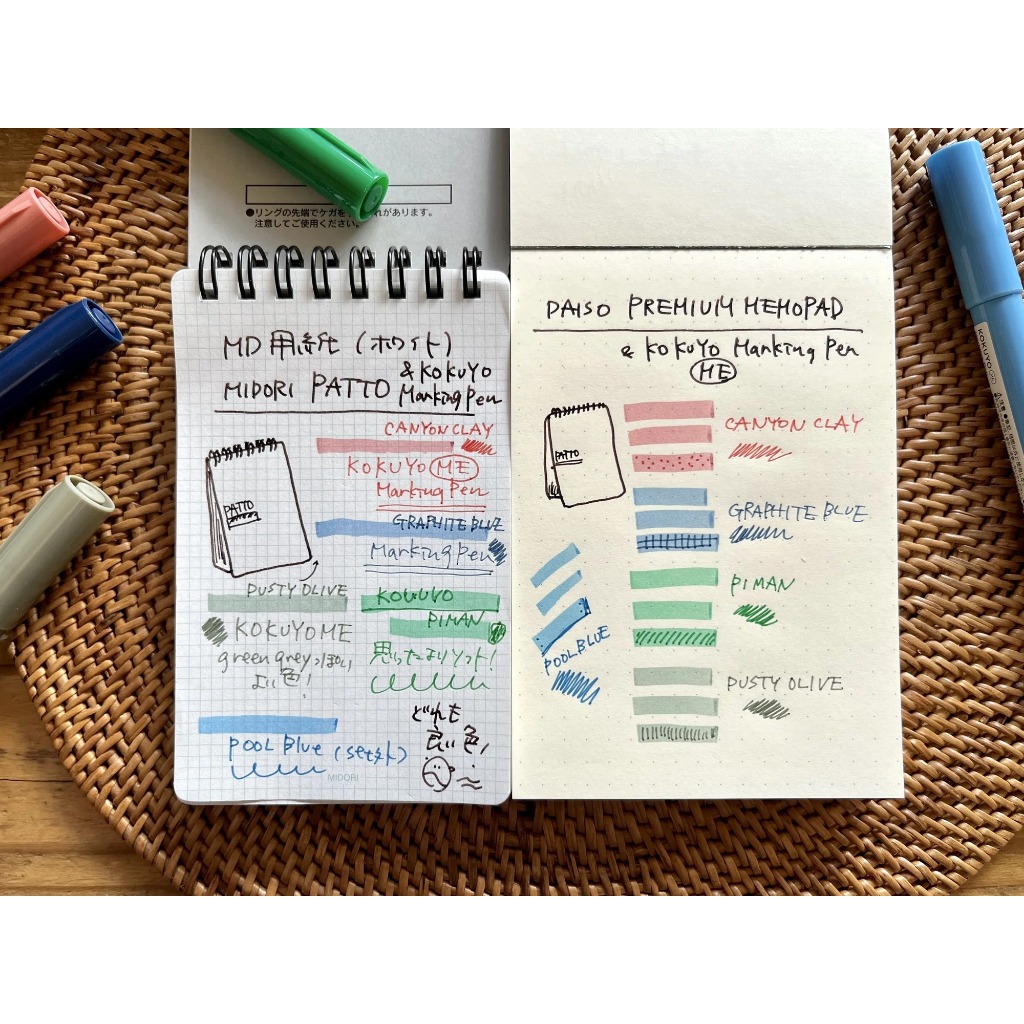 ●リングの先端でケガを
れがあります。
注意してご使用ください。
MD用紙（ホワイト）
MIDORI PATTO
& KOKUYO
Marking Pen
CANYON CLAY
KOKUYO ME
Marking Pen
GRAPHITE BLUE
Marking Pen
PATTO
DUSTY OLIVE
KOKUYO ME
green greyっぽい
よい色！
KOKUYO
PIMAN
思ったよりソフト！
POOL BLUE (set外)
どれも
良い色！
MIDORI
DAISO PREMIUM MEMOPAD
& KOKUYO Marking Pen
ME
PATTO
CANYON CLAY
GRAPHITE BLUE
PIMAN
POOL BLUE
DUSTY OLIVE
KOKUYO